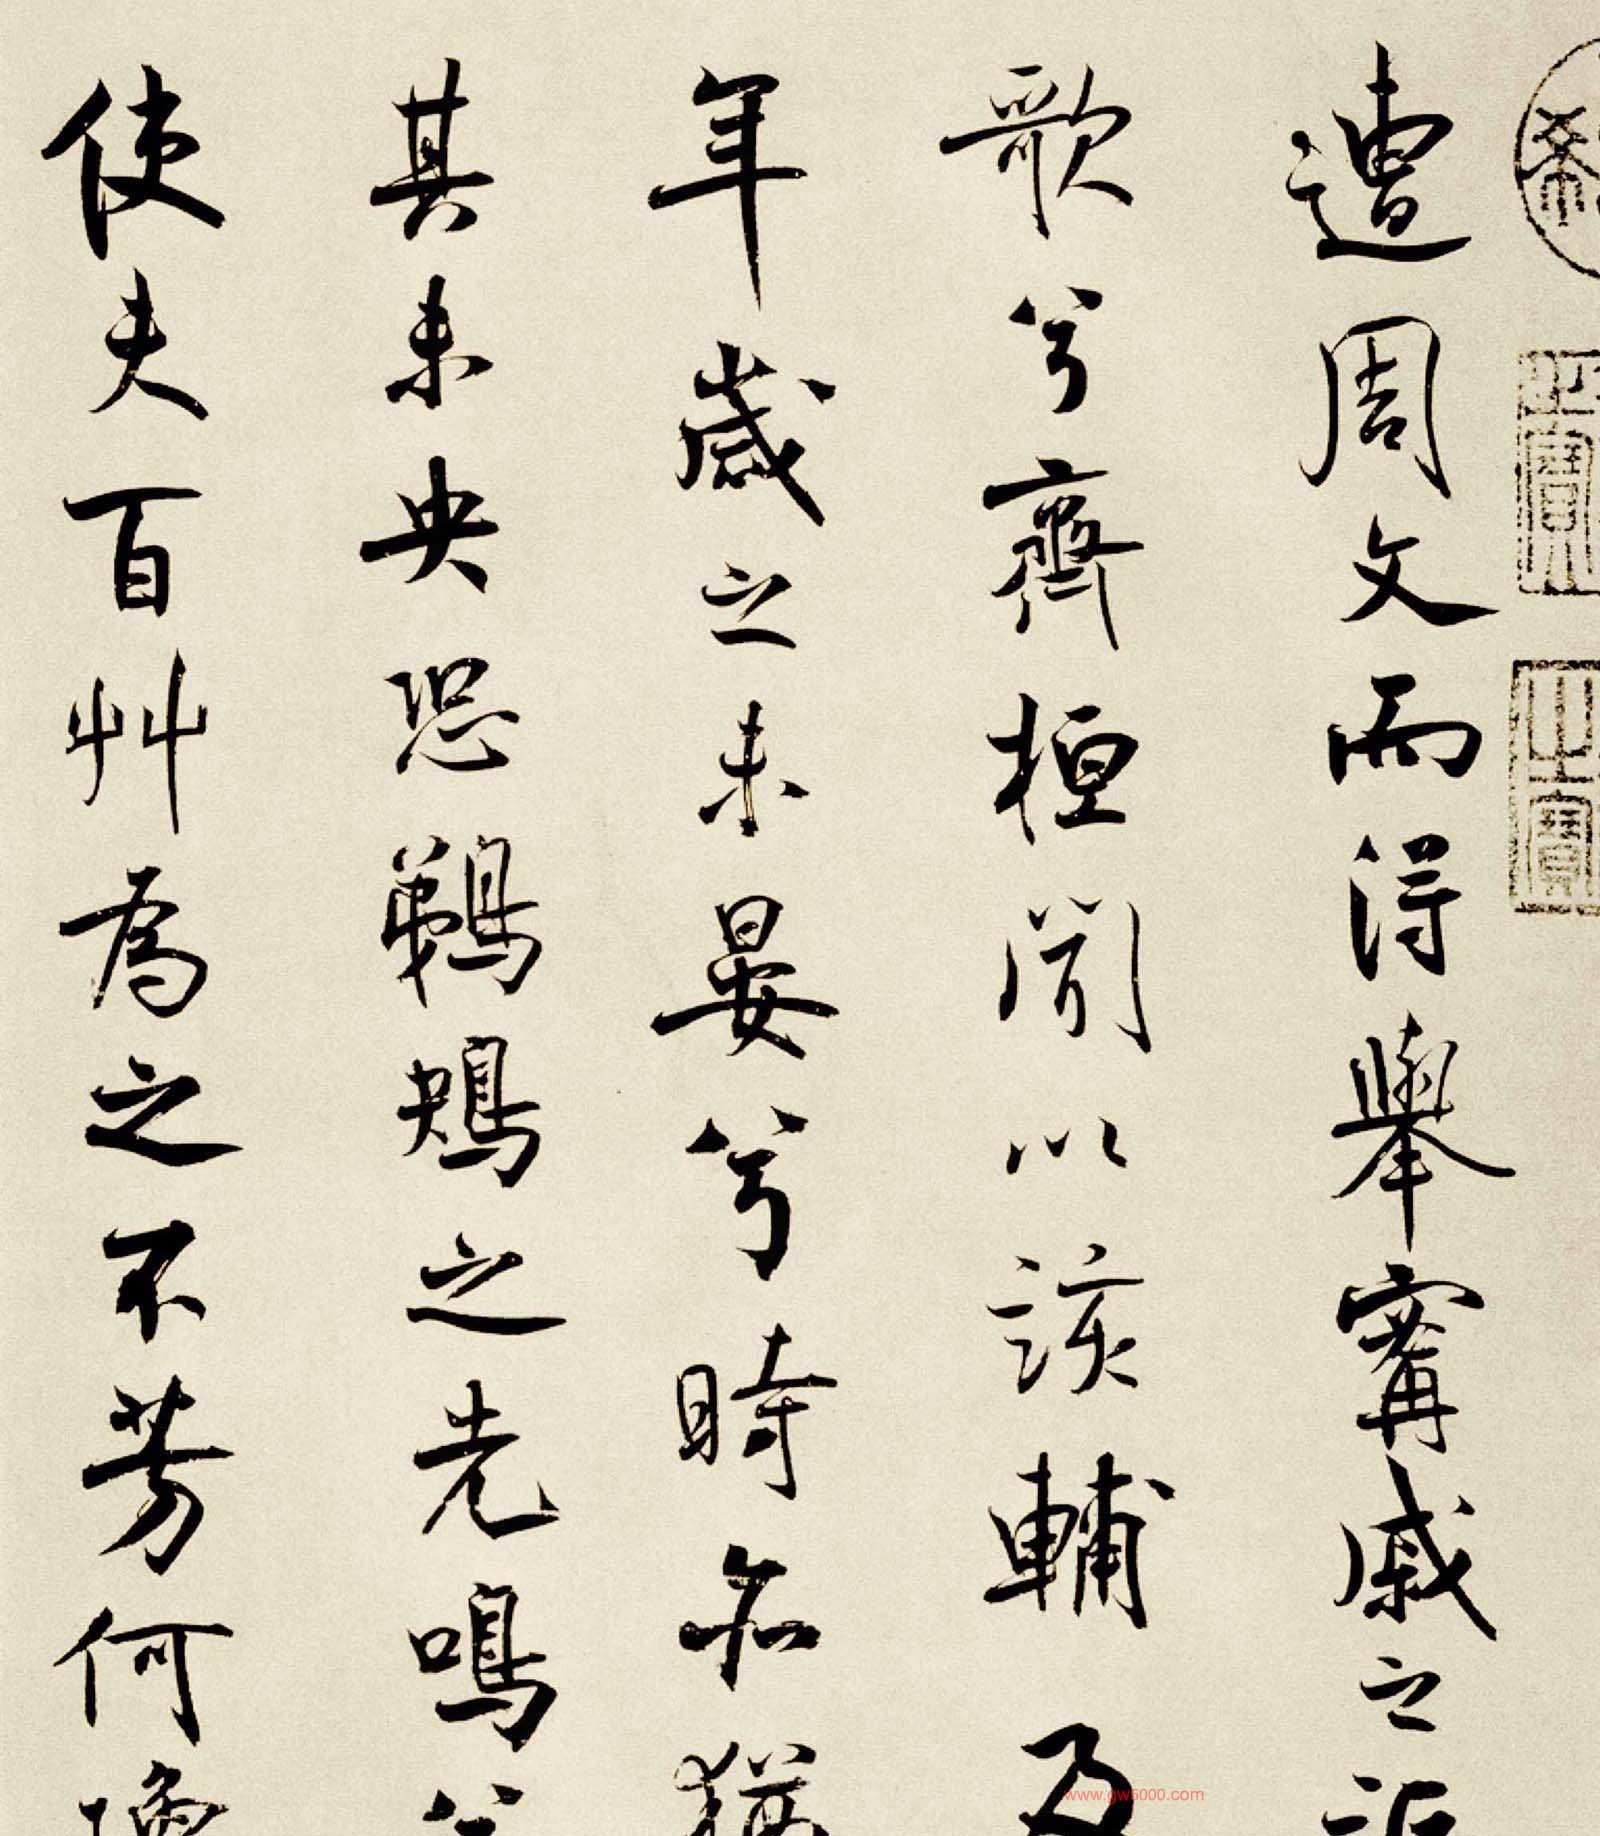 遭周文而得舉甯戚之
歌兮齊桓聞以該輔及
年歲之未晏兮時亦猶
其未央恐鵜鴂之先鳴兮
使夫百艸為之不芳何
www.gw5000.com